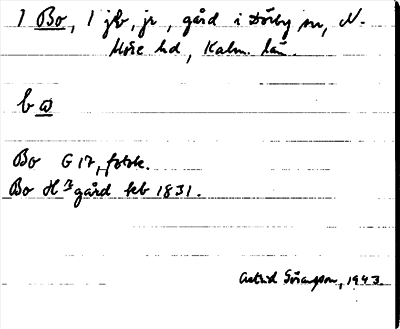 1 Bo, 1 jb, jr, gård i Dörby sn, N.
Möre hd, Kalm. län.
bω
Bo G 17, fotok.
Bo Hgård kb 1831.
Astrid Göransson, 1943.